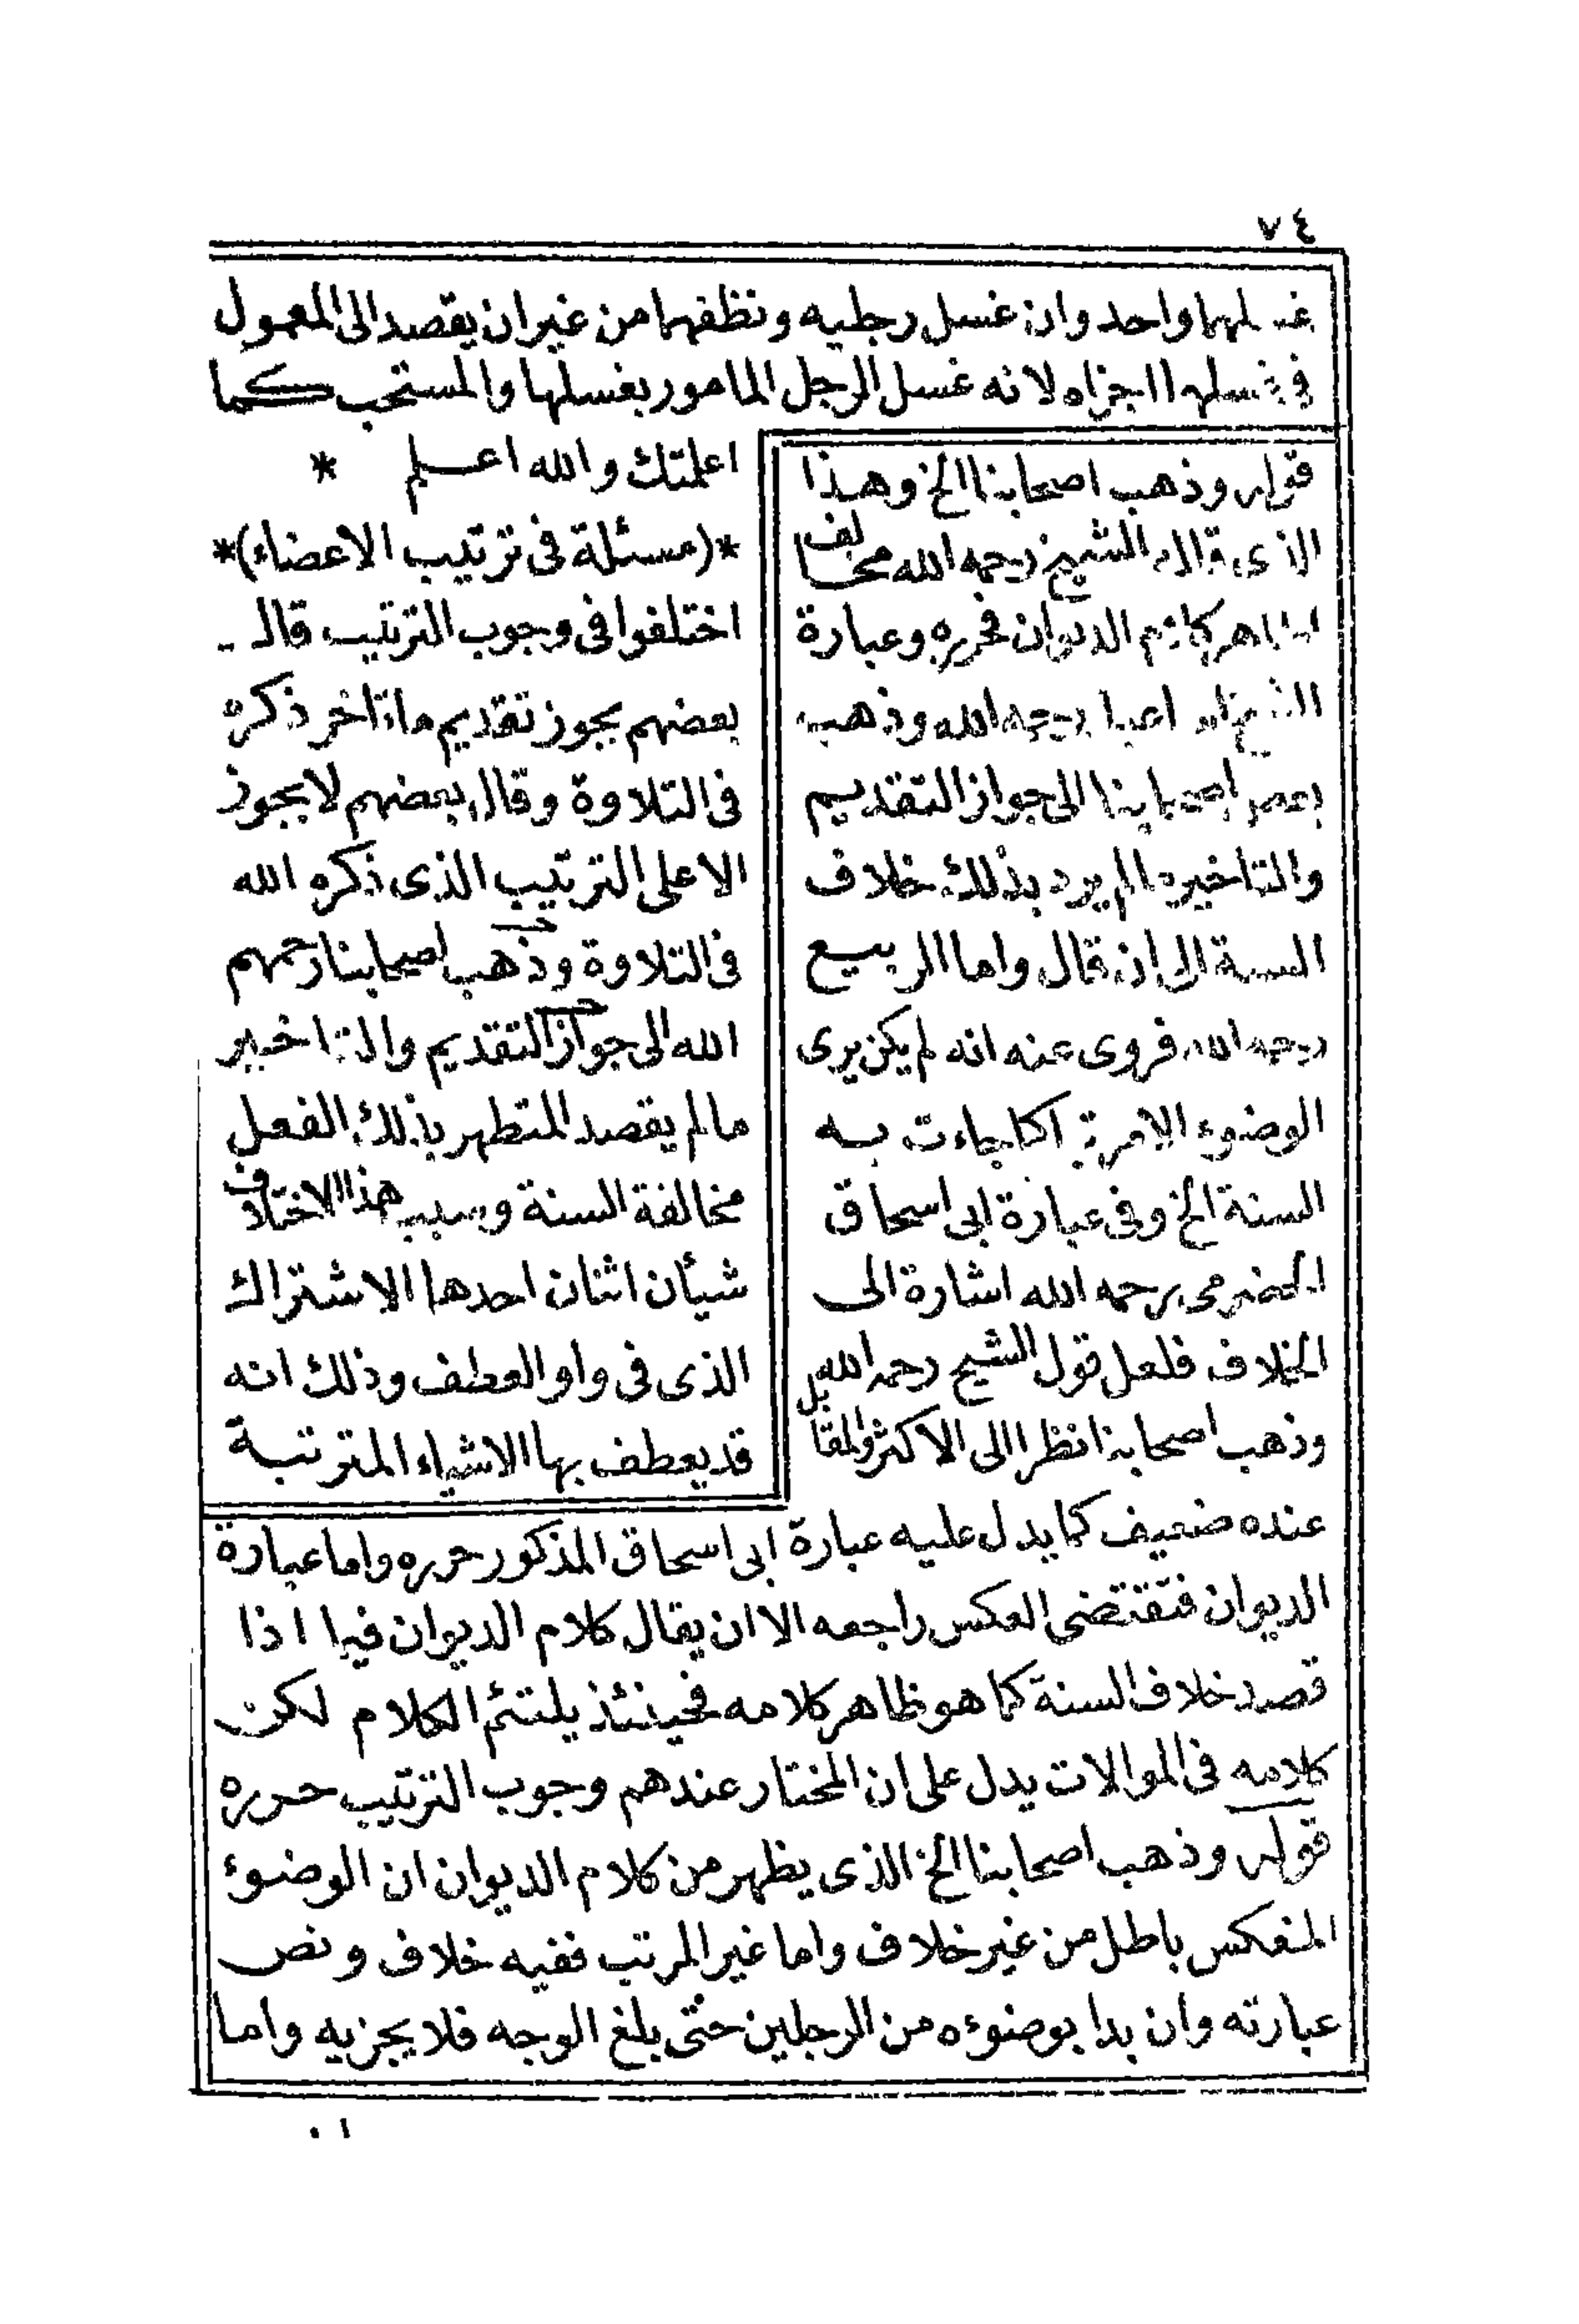 ٧٤
غسلهما واحد وان غسل رجليه ونظفهما من غير ان يقصد الى المعمول
فى غسلهما اجزاه لانه غسل الرجل المامور بغسلها والمستحب كما
اعلمتك والله اعلم *
*(مسئلة فى ترتيب الاعضاء)*
اختلفوا فى وجوب الترتيب قال
بعضهم يجوز تقديم ما تاخر ذكره
فى التلاوة وقال بعضهم لا يجوز
الا على الترتيب الذى ذكره الله
فى التلاوة وذهب اصحابنا رحمهم
الله الى جواز التقديم والتاخير
مالم يقصد المتطهر بذلك الفعل
مخالفة السنة وسبب هذا الاختلاف
شيأن اثنان احدها الاشتراك
الذى فى واو العطف وذلك انه
قد يعطف بها الاشياء المترتبة
قوله وذهب اصحابنا الخ وهذا
الذى قاله الشيخ رحمه الله مخالف
لظاهر كلام الديوان فحرره وعبارة
الشيخ رحمه الله وذهب
بعض اصحابنا الى جواز التقديم
والتاخير ما لم يرد بذلك خلاف
السنة الى ان قال واما الربيع
رحمه الله فروى عنه انه لم يكن يرى
الوضوء الا مرتبا كما جاءت به
السنة الخ وفى عبارة ابى اسحاق
الحضرمى رحمه الله اشارة الى
الخلاف فلعل قول الشيخ رحمه الله
وذهب اصحابنا نظرا الى الاكثر والمقابل
عنده ضعيف كما يدل عليه عبارة ابى اسحاق المذكور حرره واما عبارة
الديوان فتقتضى العكس راجعه الا ان يقال كلام الديوان فيما اذا
قصد خلاف السنة كما هو ظاهر كلامه فحينئذ يلتئم الكلام لكن
كلامه فى الموالات يدل على ان المختار عندهم وجوب الترتيب حرره
قوله وذهب اصحابنا الخ الذى يظهر من كلام الديوان ان الوضوء
المنعكس باطل من غير خلاف واما غير المرتب ففيه خلاف ونص
عبارته وان بدا بوضوءه من الرجلين حتى بلغ الوجه فلا يجزيه واما